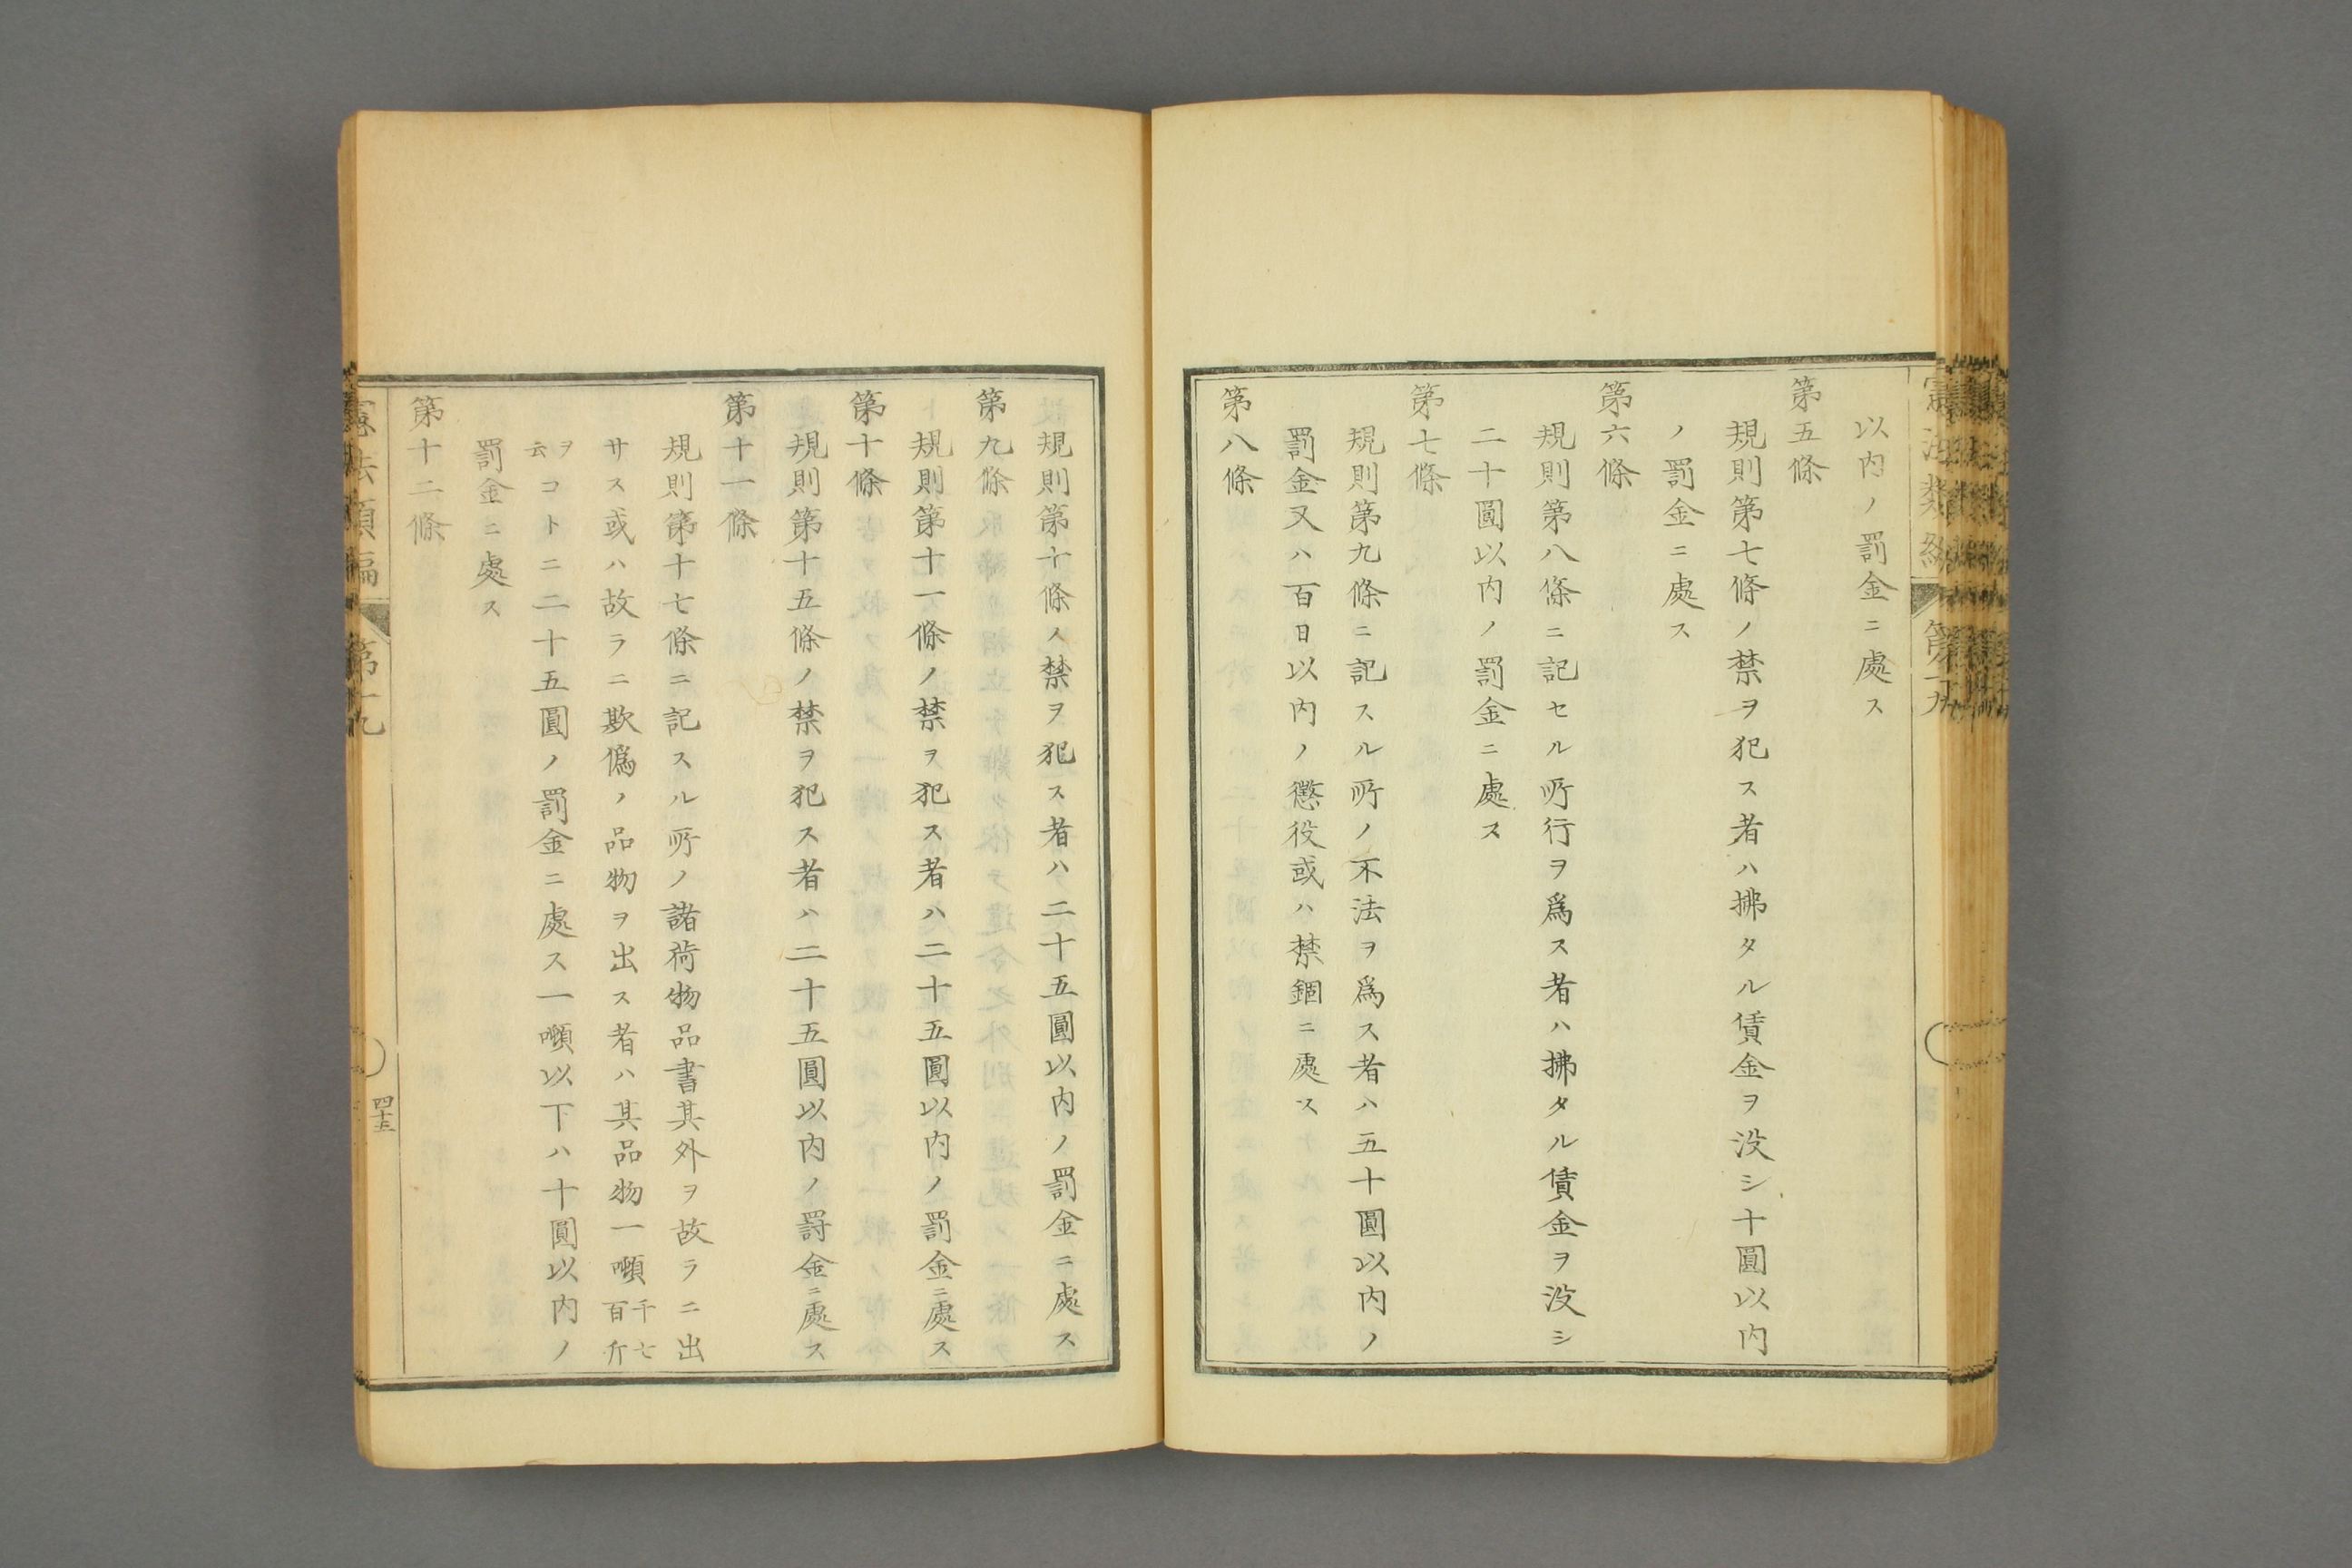 以内ノ罰金ニ處ス
第五條
規則第七條ノ禁ヲ犯ス者ハ拂タル賃金ヲ没シ十圓以内
ノ罰金ニ處ス
第六條
規則第八條ニ記セル所行ヲ爲ス者ハ拂タル賃金ヲ没シ
二十圓以内ノ罰金ニ處ス
第七條
規則第九條ニ記スル所ノ不法ヲ爲ス者ハ五十圓以内ノ
罰金又ハ百日以内ノ懲役或ハ禁錮ニ處ス
第八條
規則第十條ノ禁ヲ犯ス者ハ二十五圓以内ノ罰金ニ處ス
第九條
規則第十一條ノ禁ヲ犯ス者ハ二十五圓以内ノ罰金ニ處ス
第十條
規則第十五條ノ禁ヲ犯ス者ハ二十五圓以内ノ罰金ニ處ス
第十一條
規則第十七條ニ記スル所ノ諸荷物品書其外ヲ故ラニ出
サス或ハ故ラニ欺僞ノ品物ヲ出ス者ハ其品物一噸千七百斤
ヲ云コトニ二十五圓ノ罰金ニ處ス一噸以下ハ十圓以内ノ
罰金ニ處ス
第十二條
憲法類編 第十九
四十五